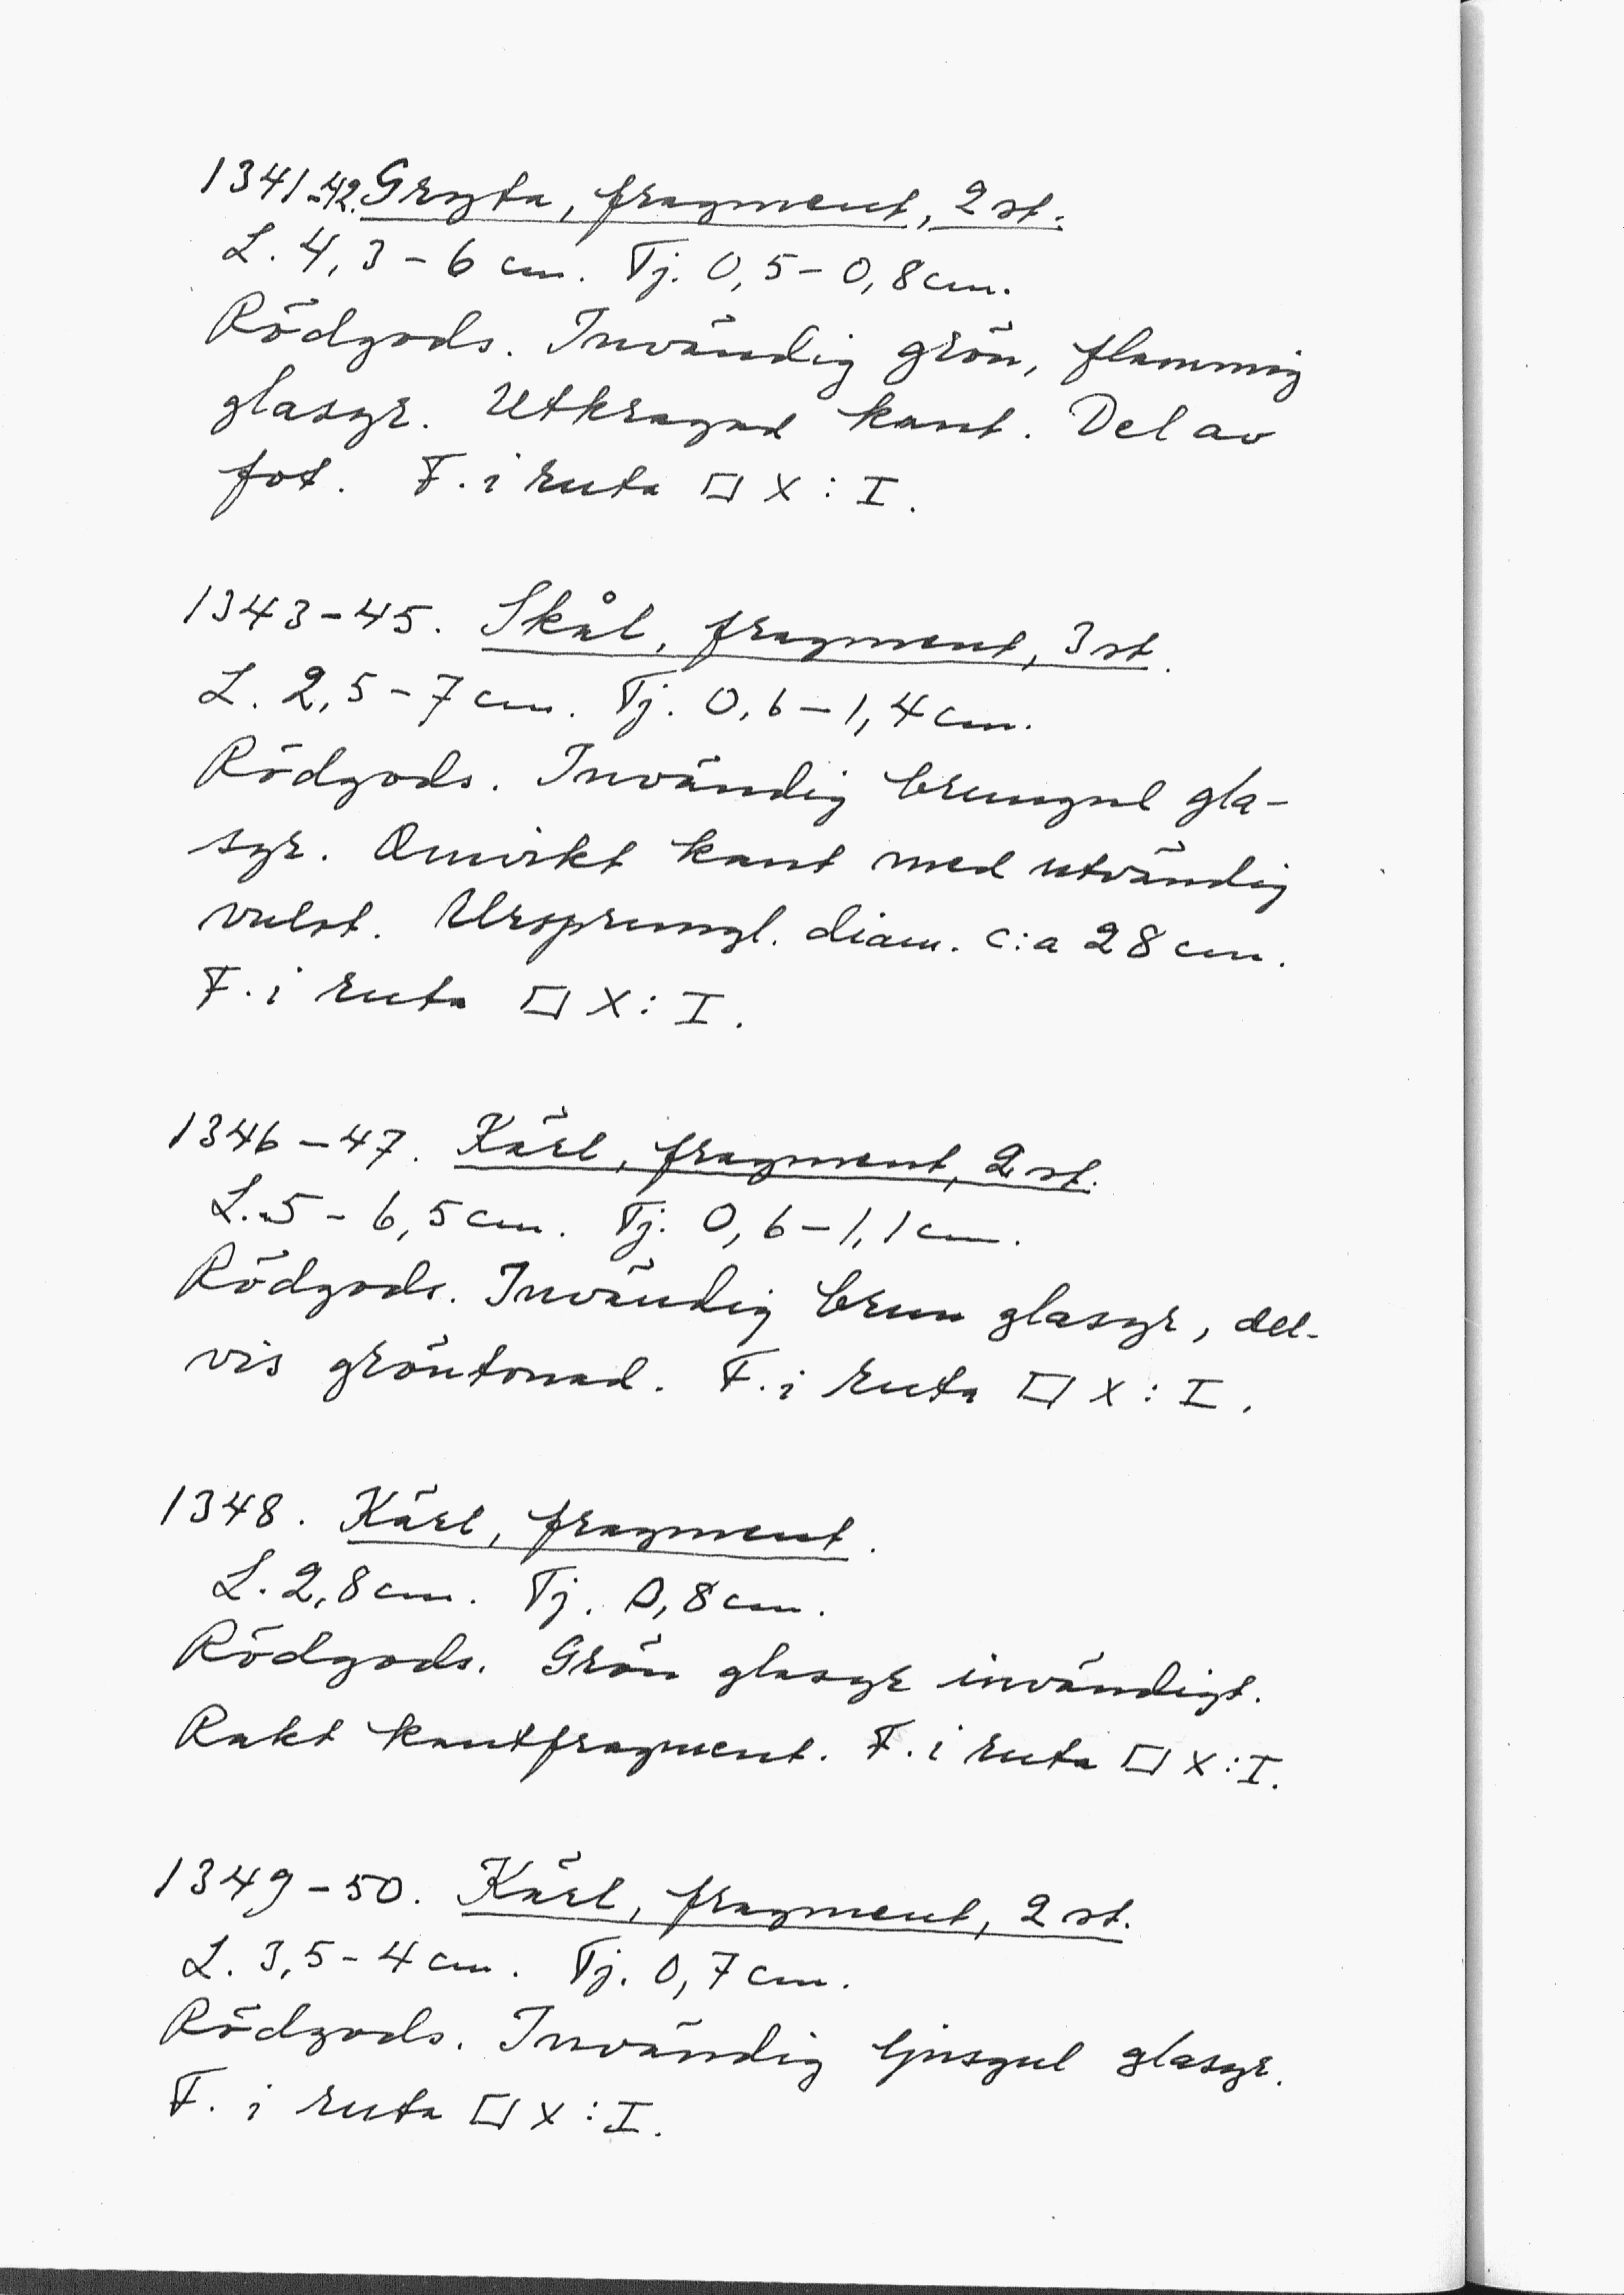 1341-42. Gryta, fragment, 2 st.
L. 4,3-6 cm. Tj. 0,5-0,8 cm.
Rödgods. Invändig grön, flammig
glasyr. Utkragad kant. Del av
fot. F. i ruta □ X:I.
1343-45. Skål, fragment, 3 st.
L. 2,5-7 cm. Tj. 0,6-1,4 cm.
Rödgods. Invändig brungul gla-
syr. Omvikt kant med utvändig
vulst. Ursprungl. diam. c:a 28 cm.
F. i ruta □ X:I.
1346-47. Kärl, fragment, 2 st.
L. 5-6,5 cm. Tj. 0,6-1,1 cm.
Rödgods. Invändig brun glasyr, del-
vis gröntonad. F. i ruta □ X:I.
1348. Kärl, fragment.
L. 2,8 cm. Tj. 0,8 cm.
Rödgods. Grön glasyr invändigt.
Rakt kantfragment. F. i ruta □ X:I.
1349-50. Kärl, fragment, 2 st.
L. 3,5-4 cm. Tj. 0,7 cm.
Rödgods. Invändig ljusgul glasyr.
F. i ruta □ X:I.